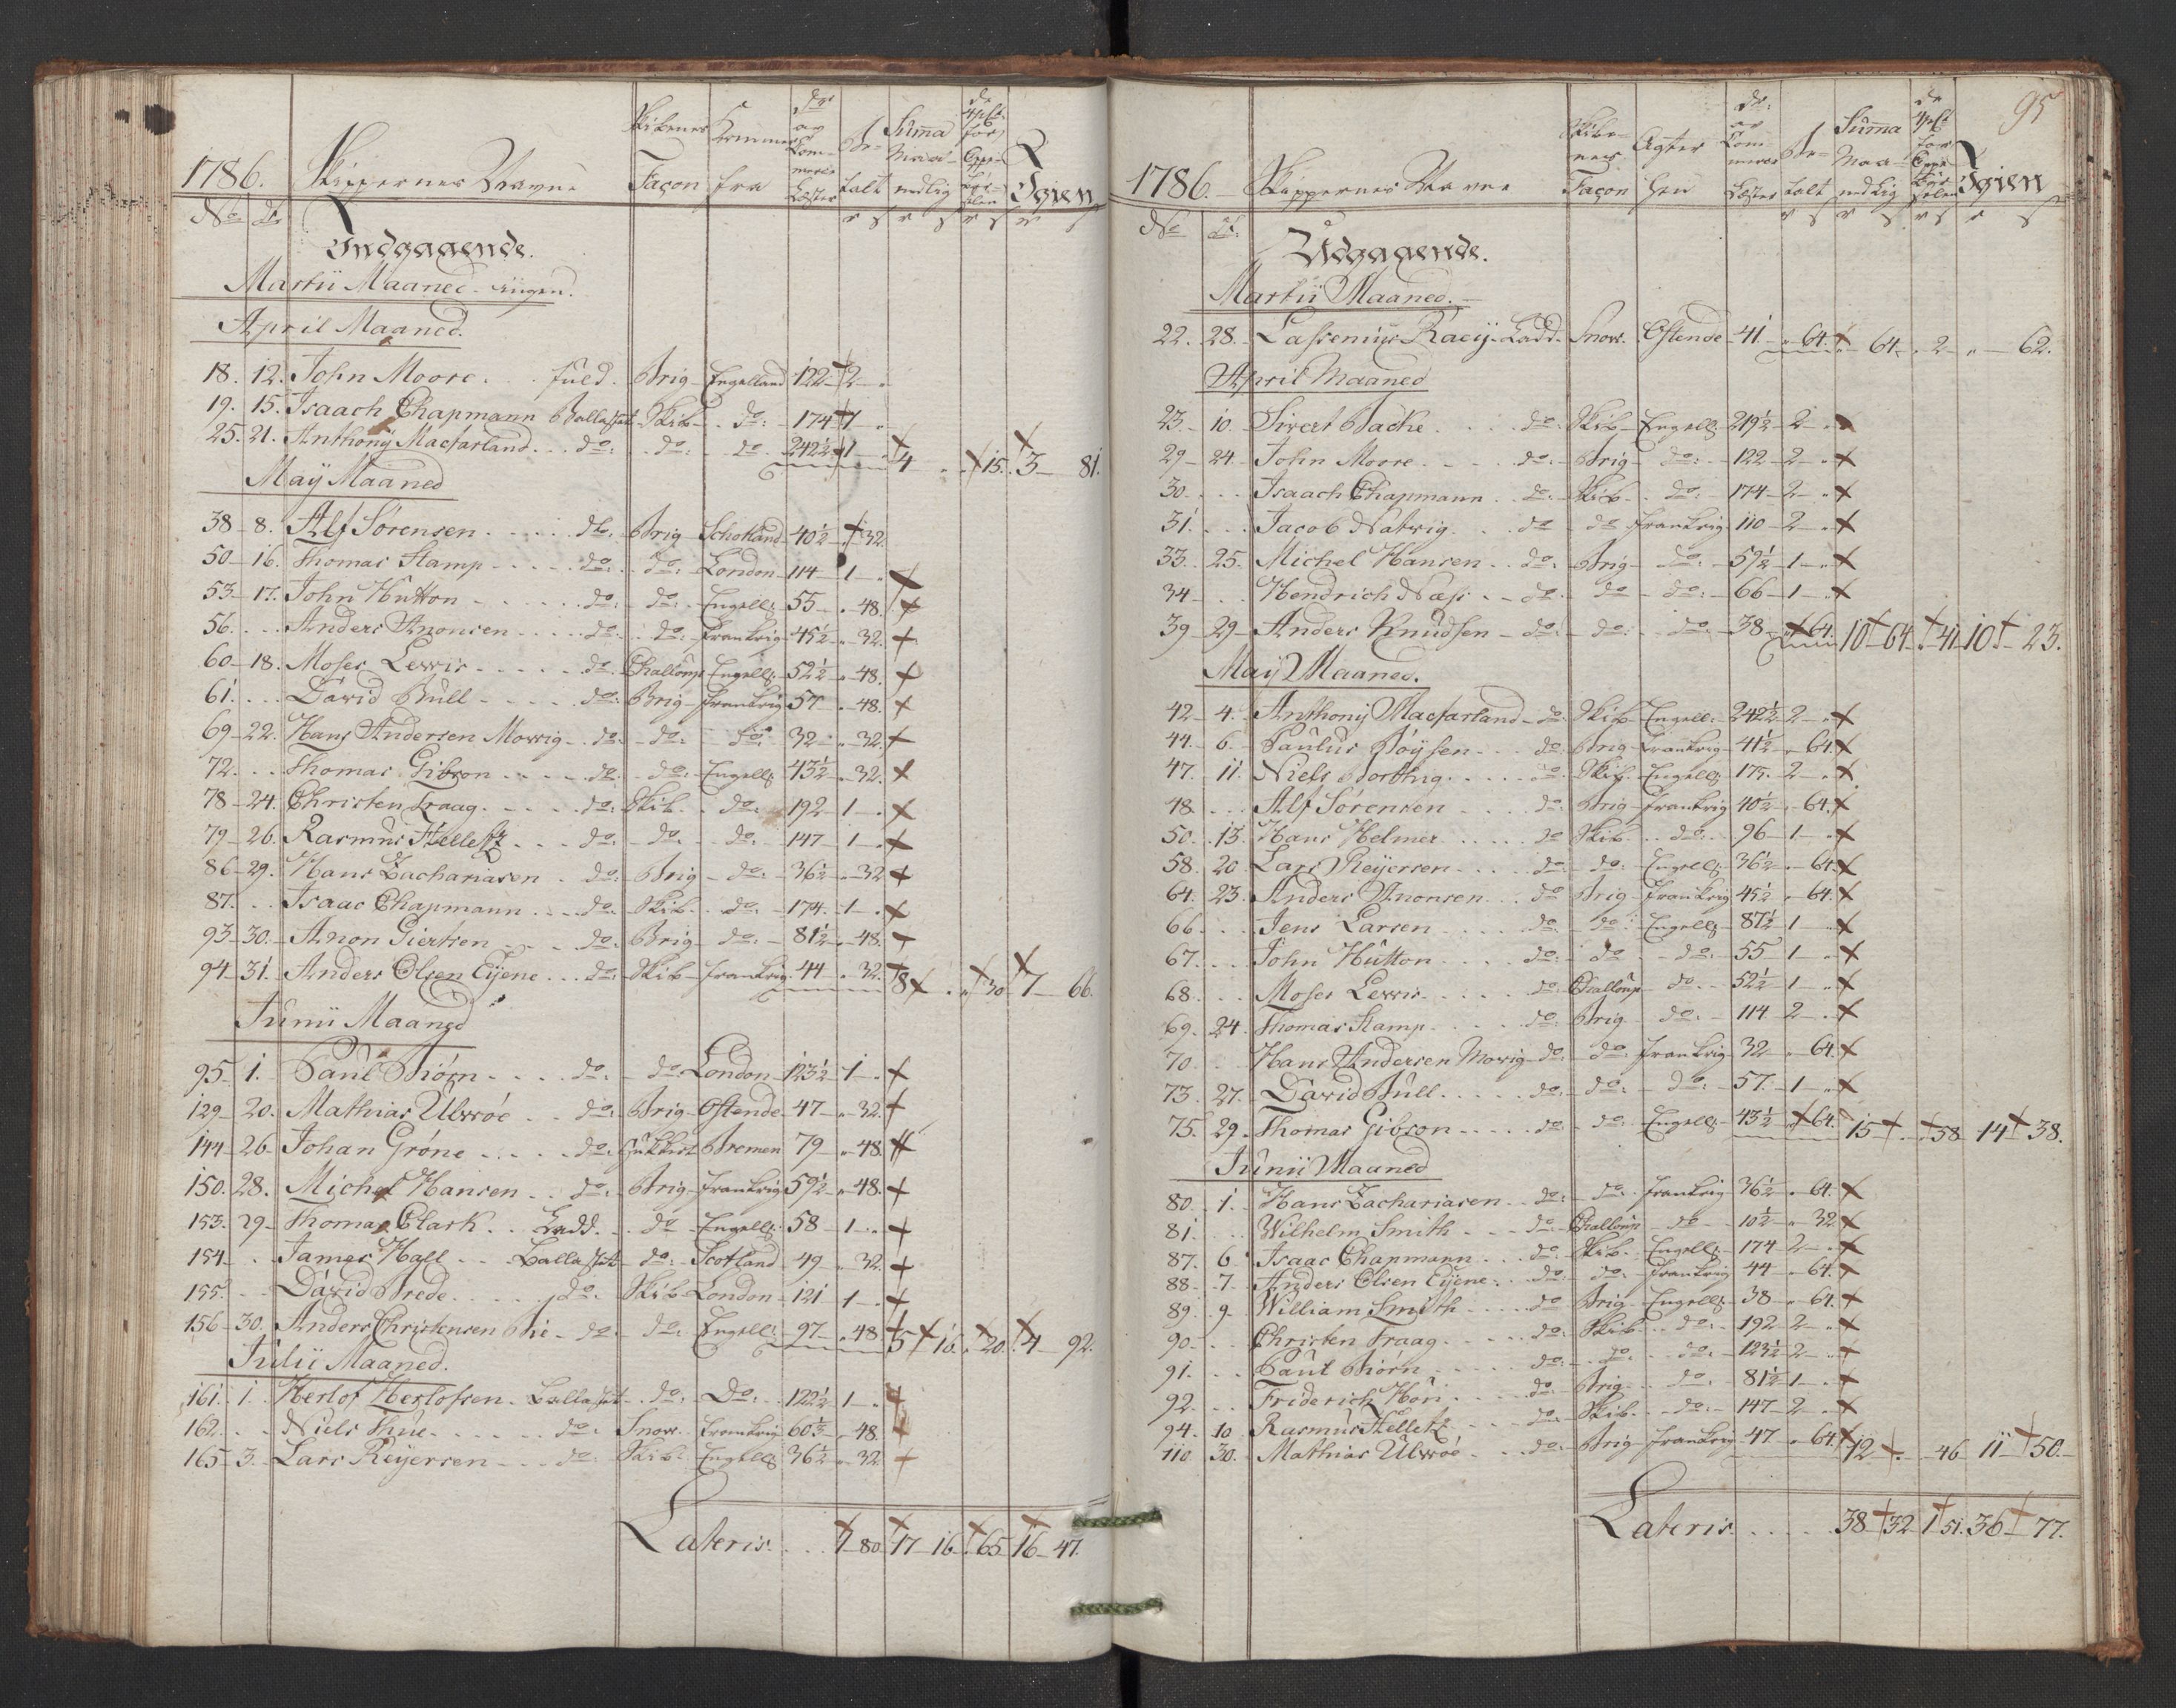 1786. Skippernes Navne Skibenes Façon Kommer fra do og Commerce Læster Betalt Summa Maanedlig de 4 pCt for Oppebørselen Igien
No do r s r s r s r s
Indgaaende.
Martii Maaned ingen.
April Maaned.
18. 12. John Moore . . fuld. Brig Engelland 122 2 "
19. 15. Isaach Chapmann Ballastet Skib do: 174 1 "
25. 21. Anthonÿ Macfarland. . . do: do: do 242½ 1 " 4 " " 15. 3 81.
Maÿ Maaned
38 8. Alf Sörensen. . . . . do. Brig Schotland 40½ " 32.
50 16. Thomas Stamp . . . . do: do: London 114 1 "
53 17. John Hutton . . . . . do: do: Engell: 55 " 48.
56. . . Anders Anonsen . . . . do: do: Frankrig 45½ " 32.
60 18. Moses Lewis . . . . . do Challoup Engell: 52½ " 48.
61. . . David Bull . . . . do: Brig Frankrig 57 " 48.
69 22. Hans Andersen Mowig . . do: do: do: 32 " 32.
72. . . Thomas Gibson . . . . do: do: Engell: 43½ " 32.
78 24. Christen Traag . . . . do: Skib do: 192 1 "
79 26. Rasmus Helletz . . . do: do: do: 147 1 "
86 29. Hans Zachariasen . do: Brig do: 36½ " 32
87. . . Isaac Chapmann . . . do: Skib do: 174 1 "
93 30. Anon Giertsen . . . do: Brig do: 81½ " 48.
94 31. Anders Olsen Eÿene . . . do: Skib Frankrig 44 " 32. 8 " " 30 7 66.
Junii Maaned
95 1. Paul Biörn . . . . do: do: London 123½ 1 "
129 20. Mathias Ulwröe . . do: Brig Ostende 47 " 32.
144 26 Johan Gröne . . . . do: Bremen 79 " 48.
150. 28. Michel Hansen . . do: Brig Frankrig 59½ " 48.
153. 29 Thomas Clark . . Ladd. do Engell: 58 1 "
154 . James Hall . . Ballastet do: Scotland 49 " 32.
155. . . David Brede . . . . do. Skib London 121 1 "
156 30. Anders Christensen Bie do do: Engell: 97 " 48. 5 16. " 20. 4 92.
Julii Maaned.
161. 1. Herlof Herlofsen. Ballastet do: Do: 122½ 1 "
162. . . Niels Thue . . . . . do: Snow. Frankrig 60½ " 48.
165 3. Lars Reÿersen . . do: Skib Engell: 36½ " 32.
Lateris . . . 1 80 17 16 " 65 16 47.
95
1786. Skippernes Navne Skibenes Façon Agter hen do: og Commerce Læster Betalt Summa Maanedlig de 4 pCt for Oppebørselen Igien
No do: r s r s r s r s
Udgaaende.
Martii Maaned.
22. 28. Racÿ. Ladd. Snow. Ostende 41 " 64. " 64. " 2 " 62.
April Maaned
23. 10. Sivert Bache . . . . do: Skib Engell: 219½ 2 "
29 24. John Moore . . . . do: Brig do: 122 2 "
30. . . Isaach Chapmann . . do: Skib do: 174 2 "
31. . . Jacob Natvig . . . do do Frankrig 110 2 "
33. 25. Michel Hansen . . do: Brig do: 59½ 1 "
34 . . Hendrich Næss . . do do do: 66 1 "
39 29 Anders Knudsen do: do: do: 38 " 64. 10 64. " 41 10 23.
Maÿ Maaned.
42 4. Anthonÿ Macfarland do: Skib Engell: 242½ 2 "
44. 6. Paulus Böÿsen . . . do: Brig Frankrig 41½ " 64.
47. 11. Niels . . . . do: Skib Engell: 175. 2 "
48 . . Alf Sörensen . . . do: Brig Frankrig 40½ " 64.
50. 13. Hans Helmer . . . . do Skib do: 96 1 "
58. 20 Lars Reÿersen . . . . do: do: Engell: 36½ " 64.
64. 23. Anders Anonsen . . do Brig Frankrig 45½ " 64.
66 . . Jens Larsen . . . . do: do: Engell: 87½ 1 "
67. . . John Hutton . . . . do: do do: 55 1 "
68. . . Moses Lewis . . . . do: Challoup do. 52½ 1 "
69. 24. Thomas Stamp . . . . do: Brig. do: 114 2 "
70 . . Hans Andersen Mowig do: do: Frankrig 32 " 64.
73. 27. David Bull . . . . . do: do: do: 57. 1 "
75. 29. Thomas Gibson . . . . do: do: Engell: 43½ " 64. 15 " " 58 14 38.
Junii Maaned
80. 1. Hans Zachariasen . . do: do: Frankrig 36½ " 64.
81. . . Wilhelm Smith . . . do: Challoup do 10½ " 32.
87. 6 Isaac Chapmann . . . do Skib. Engell: 174 2 "
88 7. Anders Olsen Eÿene . . do: do: Frankrig 44 " 64.
89. 9 William Smith . . . . do Brig Engell: 38 " 64.
90 . . Christen Traag . . . . do: Skib. do: 192 2 "
91. . . Paul Biörn . . . . do: do: do: 123½ 2 "
92. . . Friderich Horn . . . . do: Brig do: 81½ 1 "
94. 10 Rasmus Helletz . . . do: Skib. do: 147 2 "
110. 30. Mathias Ulwröe . . do: Brig Frankrig 47 " 64. 12 " " 46 11 50.
Lateris . . . . 38 32 1 51. 36 77.